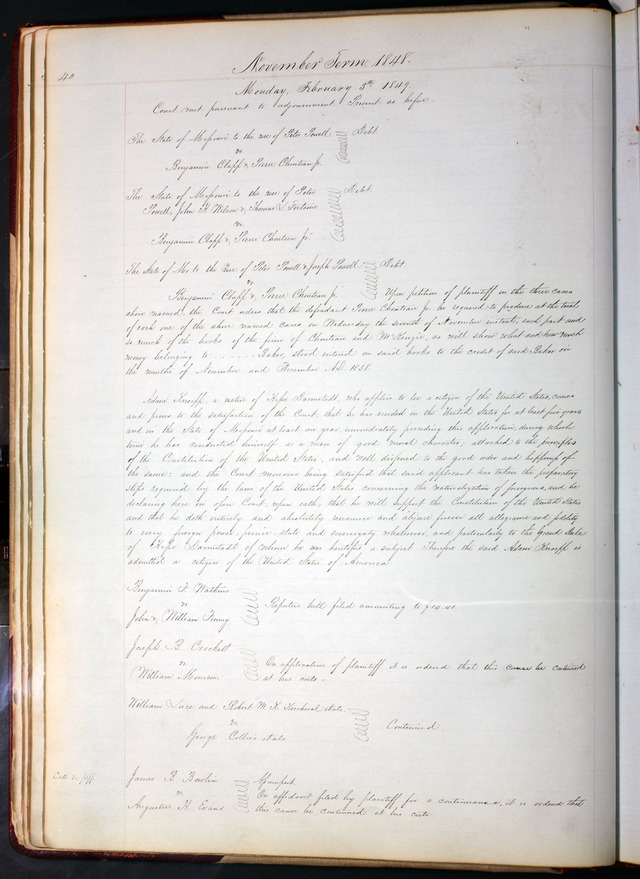 40
November Term, 1848.
Monday, February 5th 1849.
Court met pursuant to adjournment. Present as before.
The State of Missouri to the use of Peter Powell Debt
vs
Benjamin Clapp &, Pierre Chouteau Jr.
The State of Missouri to the use of Peter Debt
Powell, John F. Wilson &, Thomas L. Fontaine
vs
Benjamin Clapp &, Pierre Chouteau Jr.
The State of Mo to the use of Peter Powell & Joseph Powell Debt
vs
Benjamin Clapp &, Pierre Chouteau Jr. Upon petition of plaintiff in the three cases
above named the Court orders that the defendant Pierre Chouteau Jr. be required to produce at the trial
of each one of the above named cases on Wednesday the seventh of November instant, such part and
so much of the books of the firm of Chouteau and McKenzie, as will show what and how much
money belonging to - - - - - - Baker, stood entered on said books to the credit of said Baker in
the months of November and December A.D. 1838.
Adam Knoepfl, a native of Hesse Darmstadt, who applies to be a citizen of the United States, comes
and proves to the satisfaction of the Court that he has resided in the United States for at least five years
and in the State of Missouri at least one year, immediately preceding this application, during which
time he has conducted himself as a man of good moral character, attached to the principles
of the Constitution of the United States, and well disposed to the good order and happiness of
the same; and the Court moreover being satisfied that said applicant has taken the preparatory
steps required by the laws of the United States concerning the naturalization of foreigners, and he
declaring here in open Court, upon oath, that he will support the Constitution of the United States
and that he doth entirely and absolutely renounce and abjure forever all allegiance and fidelity
to every foreign power, prince, state and sovereignty whatsoever, and particularly to the Grand Duke
of Hesse Darmstadt of whom he was heretofore a subject Therefore the said Adam Knoepfl is
admitted a citizen of the United States of America
Benjamin F. Watkins
vs Reporters bill filed amounting to $14.40
John &, William Finney
Joseph B. Crockett
vs On application of plaintiff it is ordered that this cause be continued
William Morrison at his costs.
William Luce and Robert M. K. et als.
vs Continued.
George Collier et als
Costs vs plff. James B. Bowlin Assumpsit.
vs On affidavit filed by plaintiff, for a continuance, it is ordered that
Augustus H. Evans this cause be continued at his costs